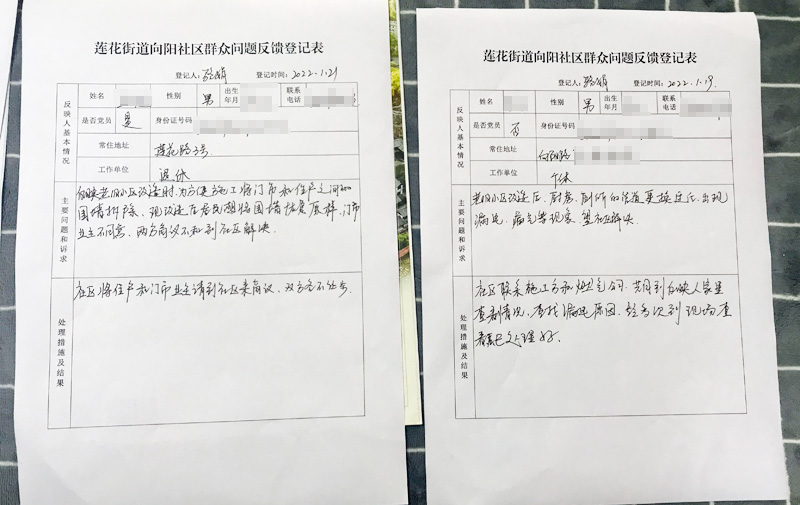 莲花街道向阳社区群众问题反馈登记表
登记人: 登记时间: 2022.1.21
反映人基本情况
姓名 性别 男 出生年月 联系电话
是否党员 是 身份证号码
常住地址 莲花路3号
工作单位 退休
主要问题和诉求
反映老旧小区改造时,为方便施工将门市和住户之间的
围墙拆除、现改造后居民想将围墙恢复原样,门市
业主不同意、两方商议不和到社区解决
处理措施及结果
社区将住户和门市业主请到社区来商议、双方各不让步.
莲花街道向阳社区群众问题反馈登记表
登记人: 登记时间: 2022.1.19.
反映人基本情况
姓名 性别 男 出生年月 联系电话
是否党员 否 身份证号码
常住地址 向阳路
工作单位 个体
主要问题和诉求
老旧小区改造后、厨房、厕所的管道更换过后、出现
漏水、漏气等现象、望社区解决
处理措施及结果
社区联系施工方和燃气公司、共同到反映人家里
查看情况、查找漏水原因、经多次到现场查
看已处理好.